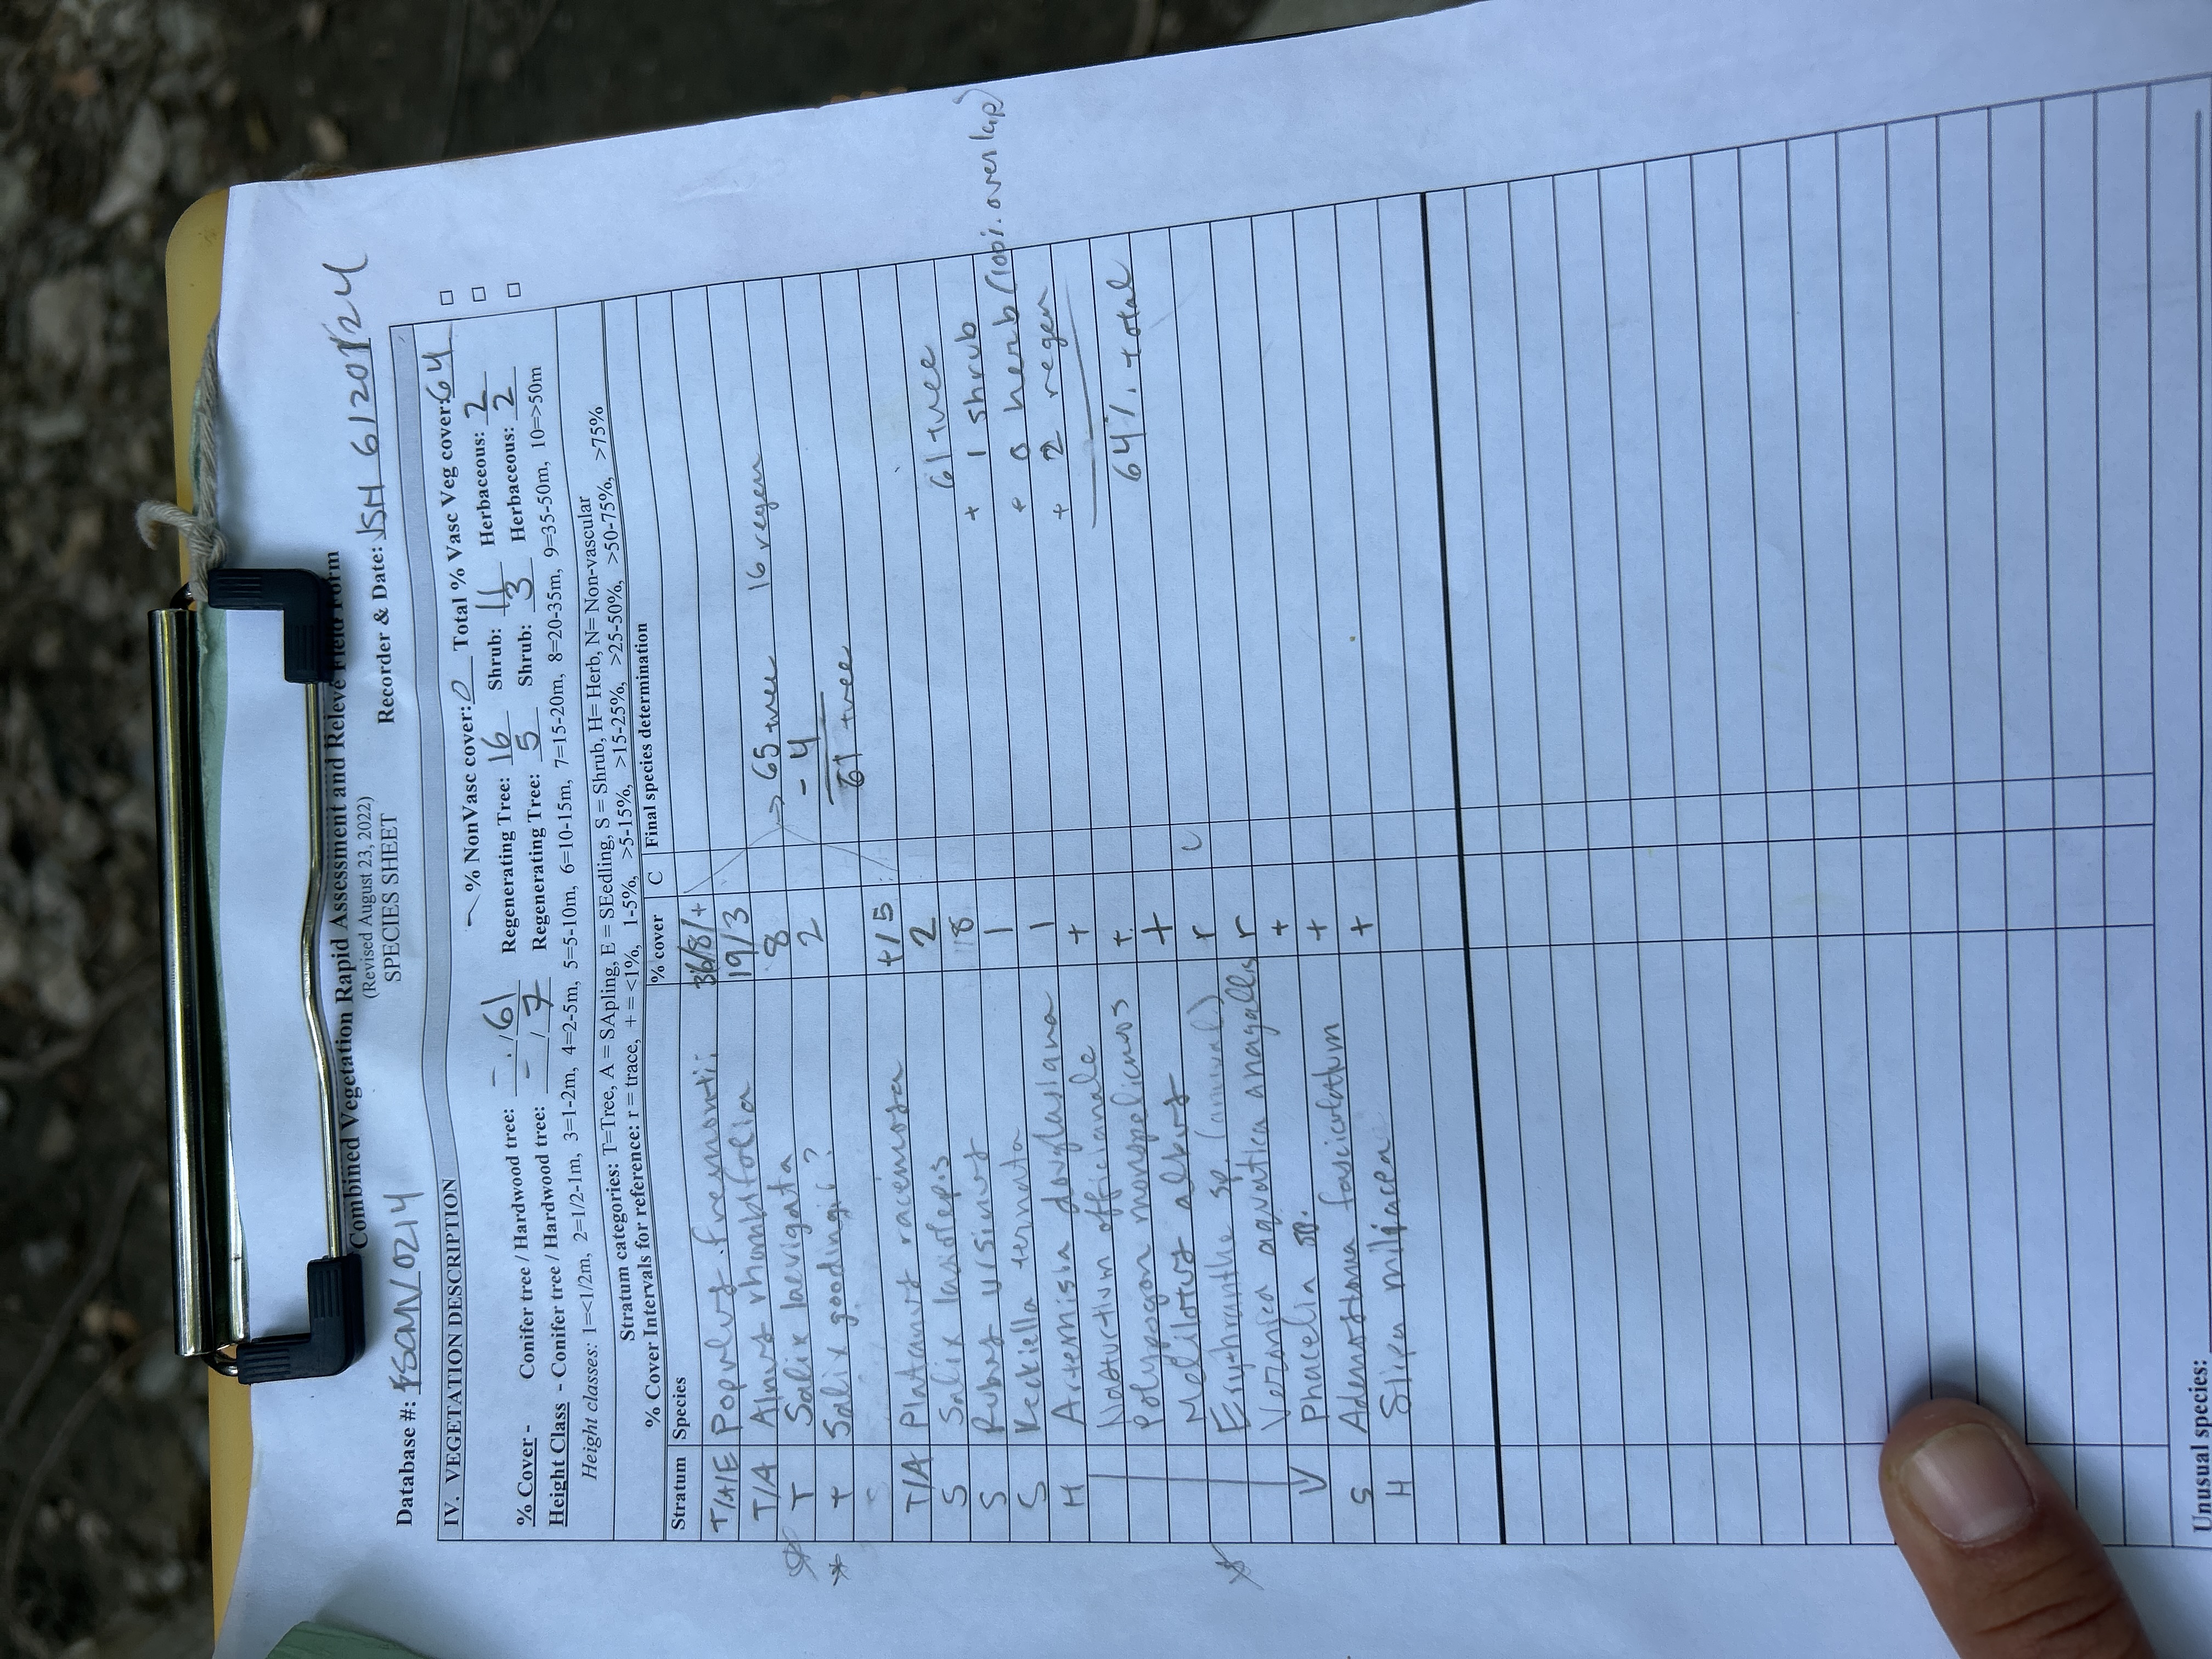 Combined Vegetation Rapid Assessment and Relevé Field Form
(Revised August 23, 2022)
SPECIES SHEET
Database #: FSCMV0214 Recorder & Date: JSH 6/20/24
IV. VEGETATION DESCRIPTION
% NonVasc cover: 0 Total % Vasc Veg cover: 64
% Cover - Conifer tree / Hardwood tree: - / 61 Regenerating Tree: 16 Shrub: 11 Herbaceous: 2
Height Class - Conifer tree / Hardwood tree: - / 7 Regenerating Tree: 5 Shrub: 3 Herbaceous: 2
Height classes: 1=<1/2m, 2=1/2-1m, 3=1-2m, 4=2-5m, 5=5-10m, 6=10-15m, 7=15-20m, 8=20-35m, 9=35-50m, 10=>50m
Stratum categories: T=Tree, A = SApling, E = SEedling, S = Shrub, H= Herb, N= Non-vascular
% Cover Intervals for reference: r = trace, + = <1%, 1-5%, >5-15%, >15-25%, >25-50%, >50-75%, >75%
Stratum Species % cover C Final species determination
T/A/E Populus fremontii 36/8/+
T/A Alnus rhombifolia 19/3 → 65 tree 16 regen
* T Salix laevigata 8 - 4
* T Salix goodingii? 2 61 tree
+/5
T/A Platanus racemosa 2 61 tree
S Salix lasiolepis 8 + 1 shrub
S Rubus ursinus 1 + 0 herb (100% overlap)
S Keckiella ternata 1 + 2 regen
H Artemisia douglasiana +
Nasturtium officianale + 64% total
Polypogon monspelicnos +
Melilotus albus r C
* Erythranthe sp. (annual) r
Veronica aquatica anagalls +
Phacelia sp. +
S Adenostoma fasciculatum +
H Stipa miliacea
Unusual species: